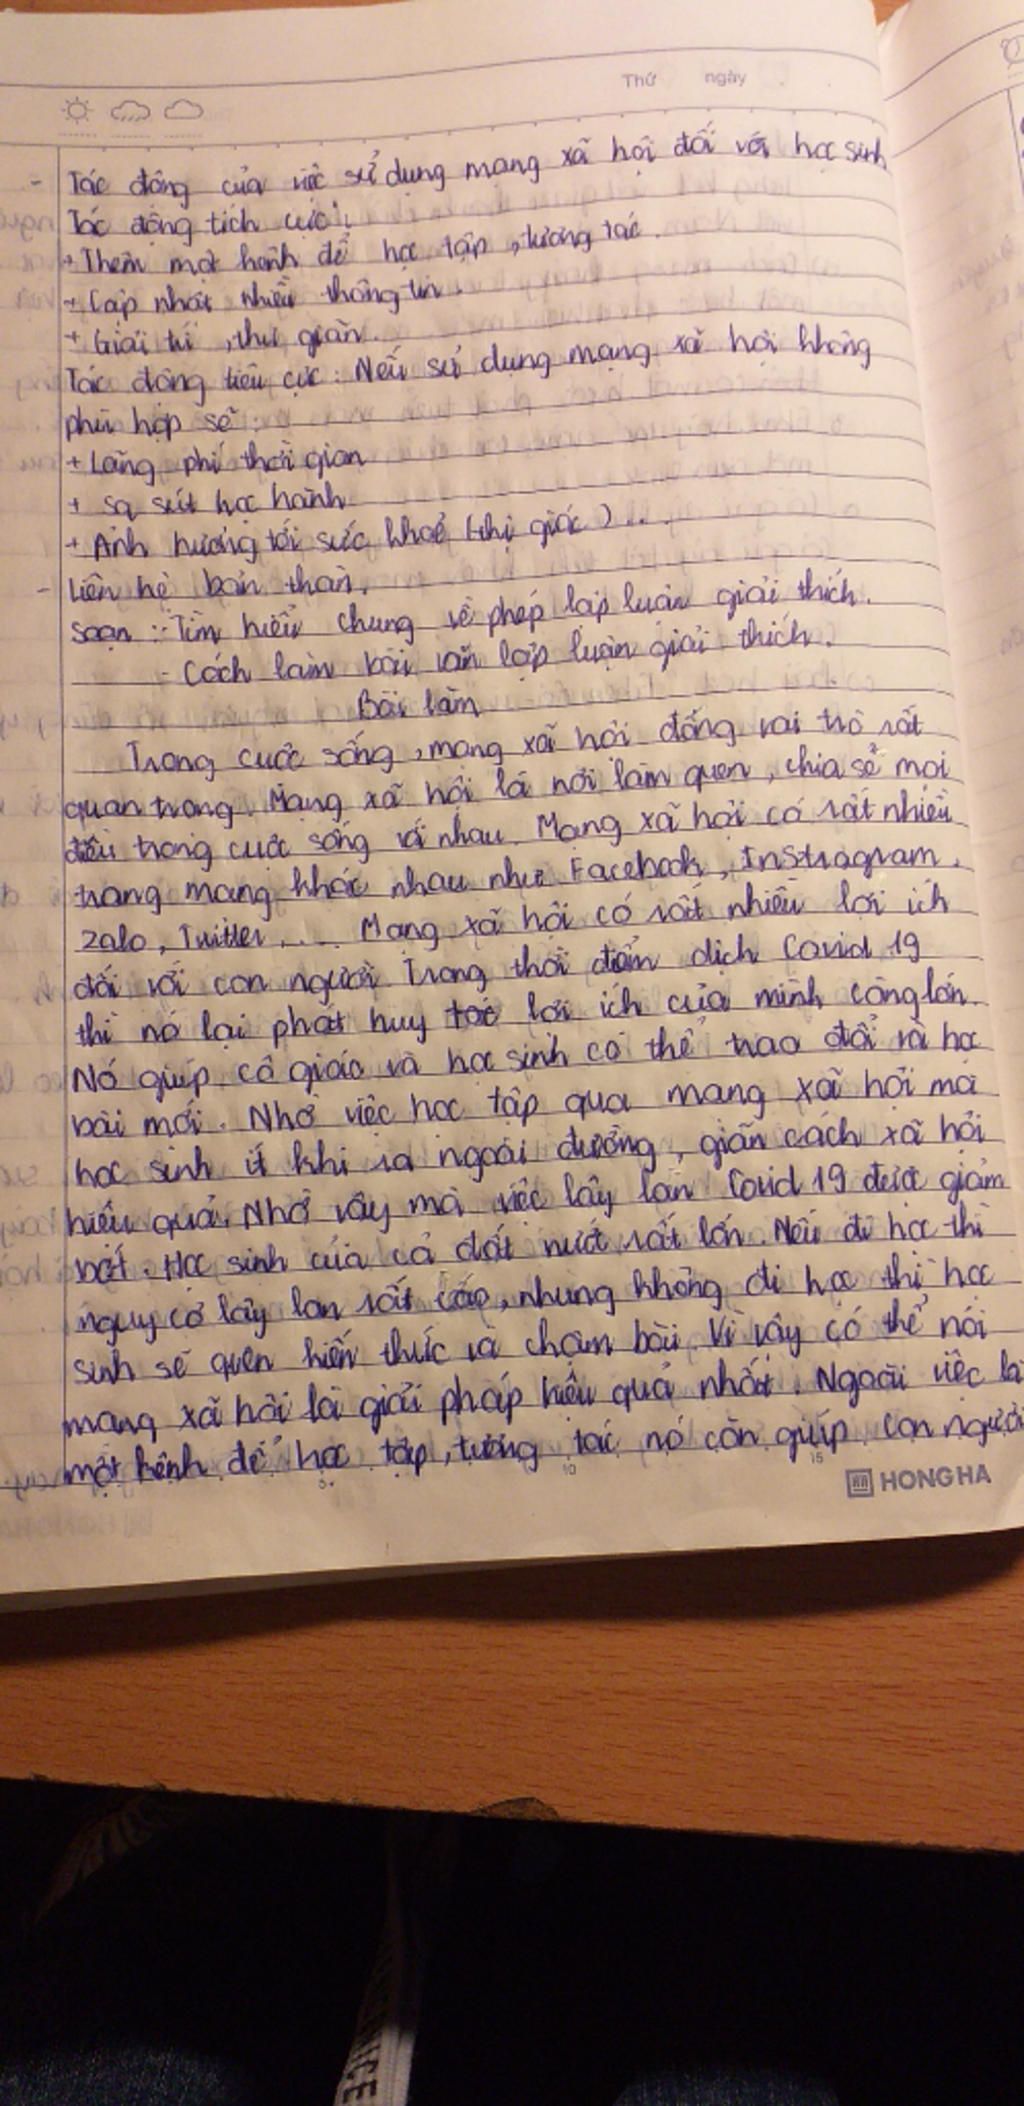 Thứ ngày
- Tác động của việc sử dụng mạng xã hội đối với học sinh
Tác động tích cực:
+ Thêm một kênh để học tập, tương tác.
+ Cập nhật nhiều thông tin.
+ Giải trí, thư giãn.
Tác động tiêu cực: Nếu sử dụng mạng xã hội không
phù hợp sẽ:
+ Lãng phí thời gian
+ sa sút học hành
+ Ảnh hưởng tới sức khoẻ (thị giác)...
- Liên hệ bản thân.
Soạn: - Tìm hiểu chung về phép lập luận giải thích.
- Cách làm bài văn lập luận giải thích.
Bài làm
Trong cuộc sống, mạng xã hội đóng vai trò rất
quan trọng. Mạng xã hội là nơi làm quen, chia sẻ mọi
điều trong cuộc sống với nhau. Mạng xã hội có rất nhiều
trang mạng khác nhau như Facebook, Instragram,
Zalo, Twitter,... Mạng xã hội có rất nhiều lợi ích
đối với con người. Trong thời điểm dịch Covid 19
thì nó lại phát huy tác lợi ích của mình càng lớn.
Nó giúp cô giáo và học sinh có thể trao đổi và học
bài mới. Nhờ việc học tập qua mạng xã hội mà
học sinh ít khi ra ngoài đường, giãn cách xã hội
hiệu quả. Nhờ vậy mà việc lây lan Covid 19 được giảm
bớt. Học sinh của cả đất nước rất lớn. Nếu đi học thì
nguy cơ lây lan rất cao, nhưng không đi học thì học
sinh sẽ quên kiến thức và chậm bài. Vì vậy có thể nói
mạng xã hội là giải pháp hiệu quả nhất. Ngoài việc là
một kênh để học tập, tương tác nó còn giúp con người
5 10 15
HONG HA